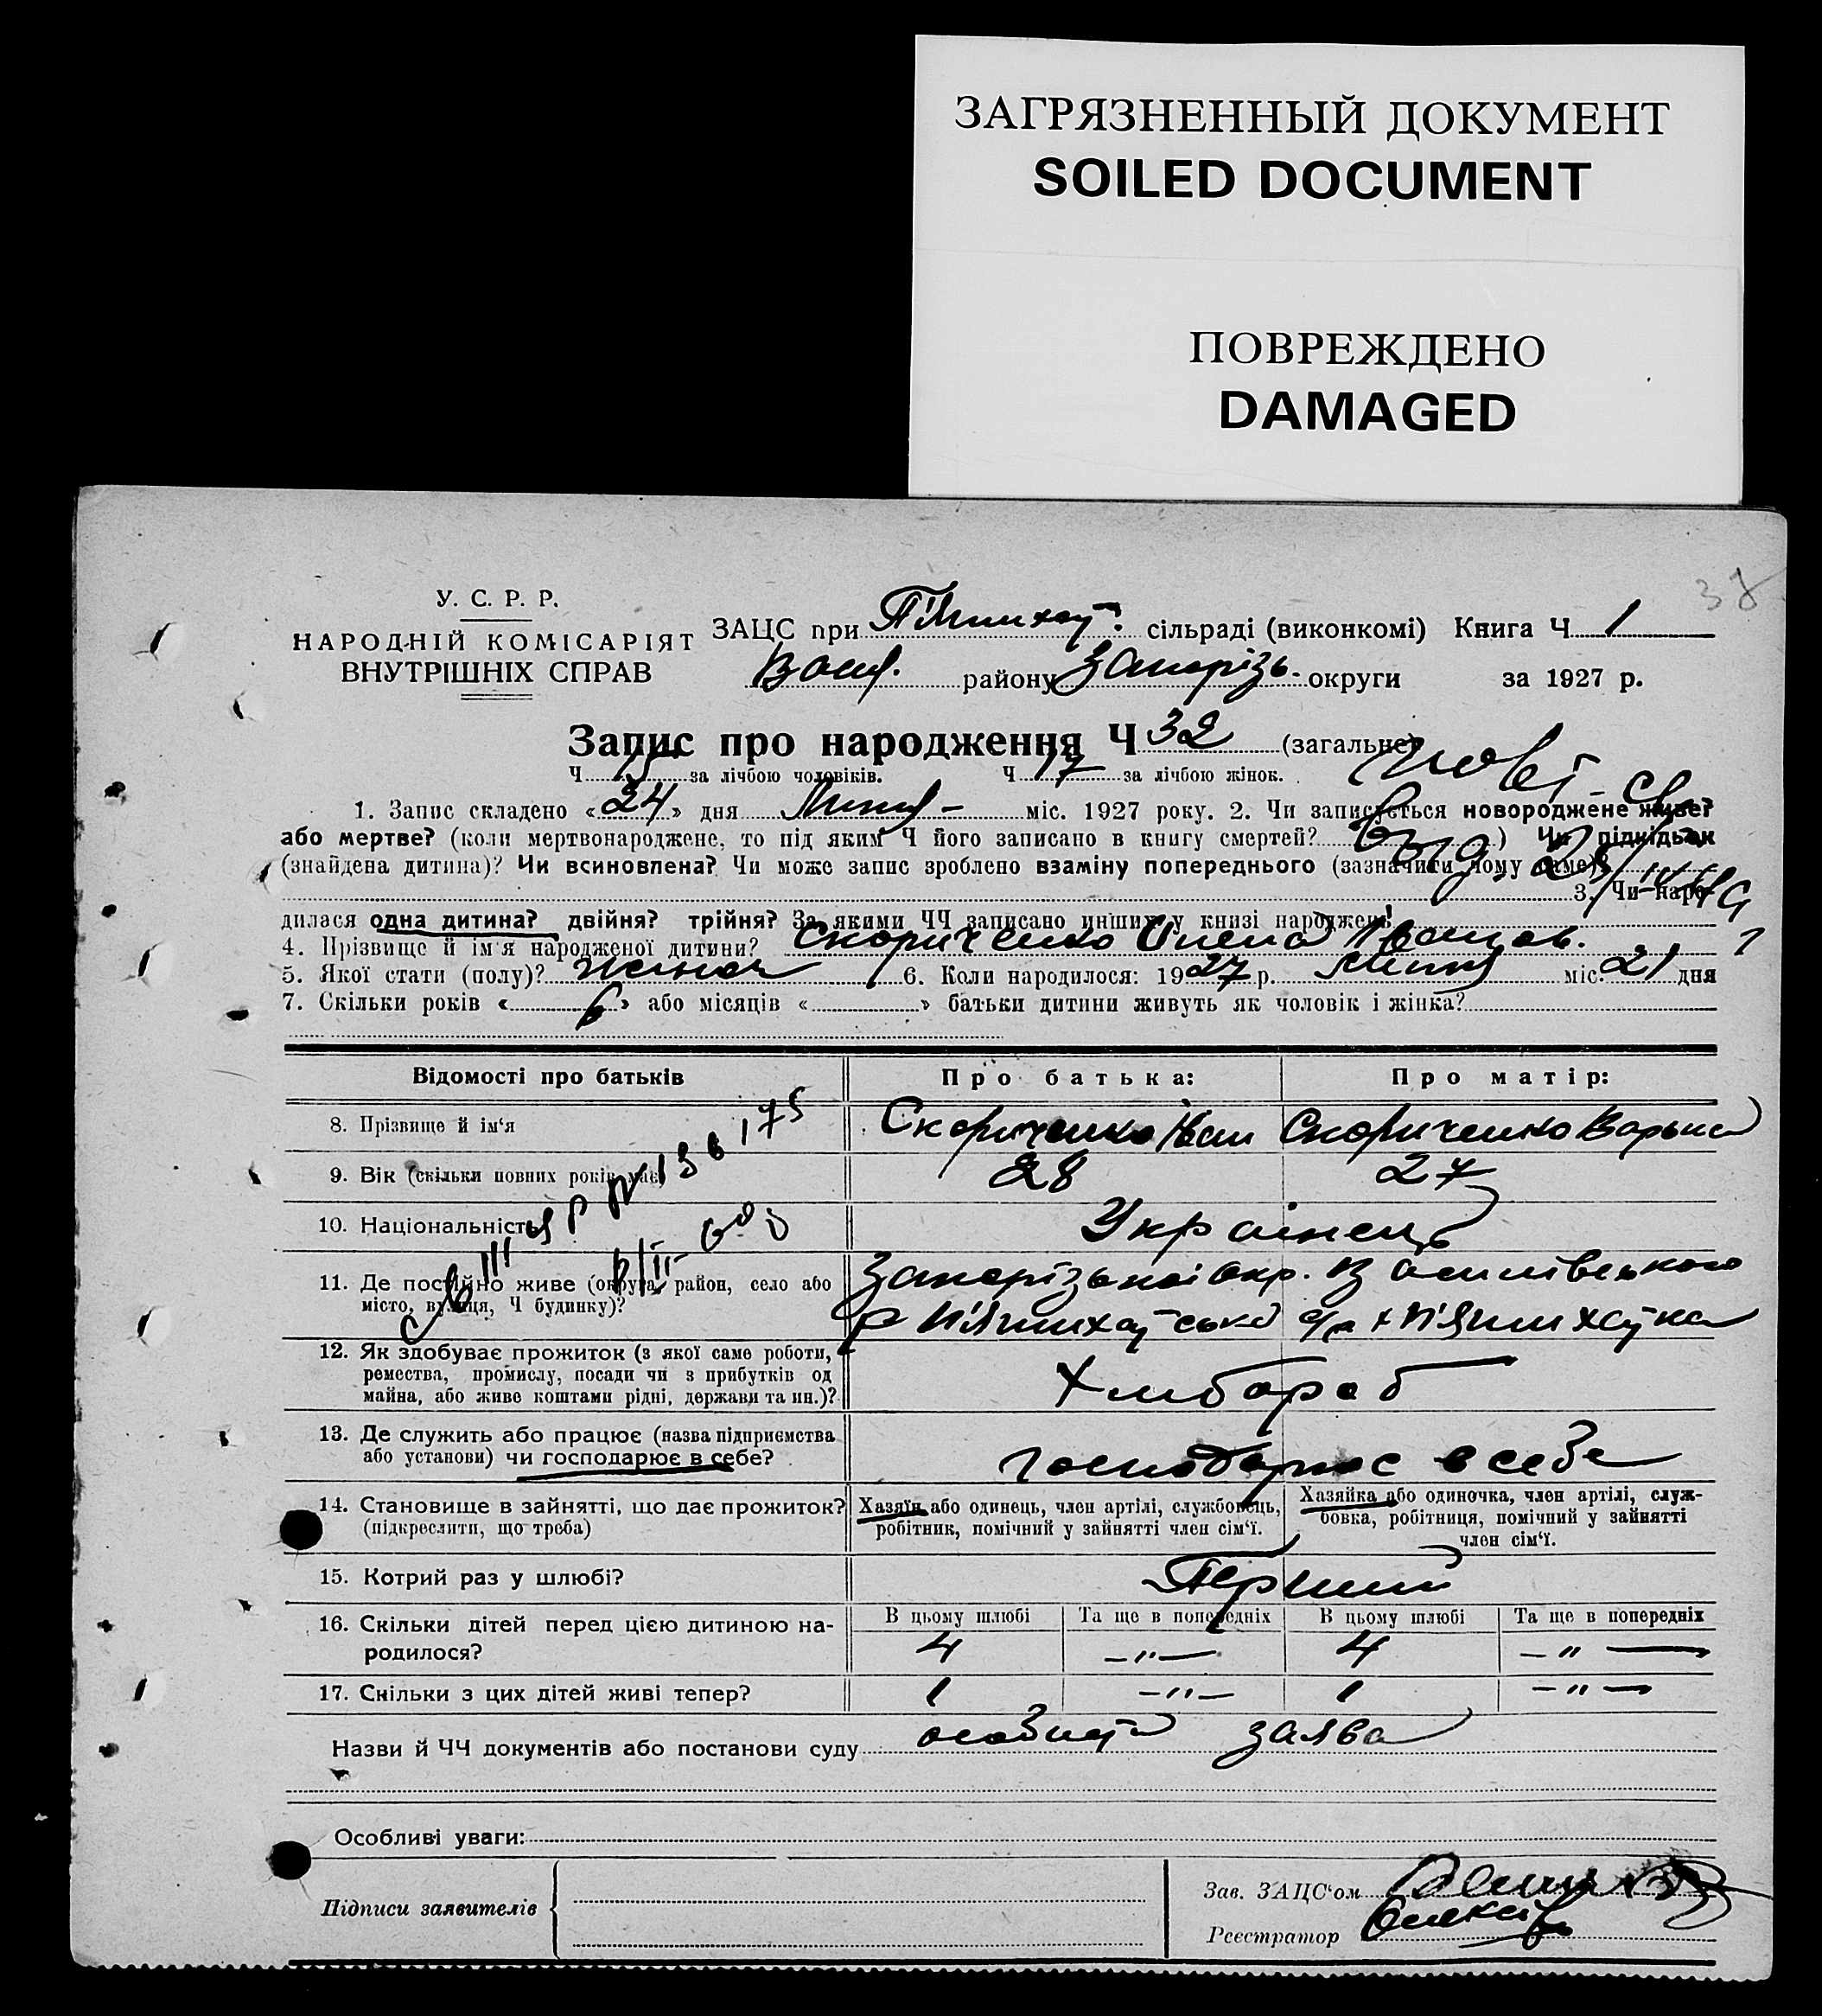 ЗАГРЯЗНЕННЫЙ ДОКУМЕНТ
SOILED DOCUMENT
ПОВРЕЖДЕНО
DAMAGED
У. С. Р. Р.
НАРОДНІЙ КОМІСАРІЯТ
ВНУТРІШНІХ СПРАВ
ЗАЦС при П'ятихат. сільраді (виконкомі) Книга Ч 1
Васил. району Запорізь. округи за 1927 р.
Запис про народження Ч 32 (загальне)
Ч 15 за лічбою чоловіків. Ч 17 за лічбою жінок.
1. Запис складено «24» дня Липня міс. 1927 року. 2. Чи записується новороджене живе?
або мертве? (коли мертвонароджене, то під яким Ч його записано в книгу смертей? ) Чи підкідьок
(знайдена дитина)? Чи всиновлена? Чи може запис зроблено взаміну попереднього (зазначити чому саме)?
3. Чи наро-
дилася одна дитина? двійня? трійня? За якими ЧЧ записано инших у книзі народжень?
4. Прізвище й ім'я народженої дитини? Скориченко Олена Іванов.
5. Якої стати (полу)? жіноч 6. Коли народилося: 1927 р. Липня міс. 21 дня
7. Скільки років «6» або місяців « » батьки дитини живуть як чоловік і жінка?
Відомості про батьків Про батька: Про матір:
8. Прізвище й ім'я Скориченко Іван Скориченко Варька
9. Вік (скільки повних років має) 28 27
10. Національність Українець
11. Де постійно живе (округа, район, село або
місто, вулиця, Ч будинку)? Запорізької окр. Василівського
р П'ятихатської с/р х П'ятихатка
12. Як здобуває прожиток (з якої саме роботи,
ремества, промислу, посади чи з прибутків од
майна, або живе коштами рідні, держави та ин.)? Хлібороб
13. Де служить або працює (назва підприємства
або установи) чи господарює в себе? Господарює в себе
14. Становище в зайнятті, що дає прожиток?
(підкреслити, що треба)
Хазяїн або одинець, член артілі, службовець,
робітник, помічний у зайнятті член сім'ї.
Хазяйка або одиночка, член артілі, служ-
бовка, робітниця, помічний у зайнятті
член сім'ї.
15. Котрий раз у шлюбі? Перший
16. Скільки дітей перед цією дитиною на-
родилося?
В цьому шлюбі Та ще в попередніх В цьому шлюбі Та ще в попередніх
4 —"— 4 —"—
17. Скільки з цих дітей живі тепер? 1 —"— 1 —"—
Назви й ЧЧ документів або постанови суду особиста заява
Особливі уваги:
Підписи заявителів
Зав. ЗАЦС'ом
Реєстратор